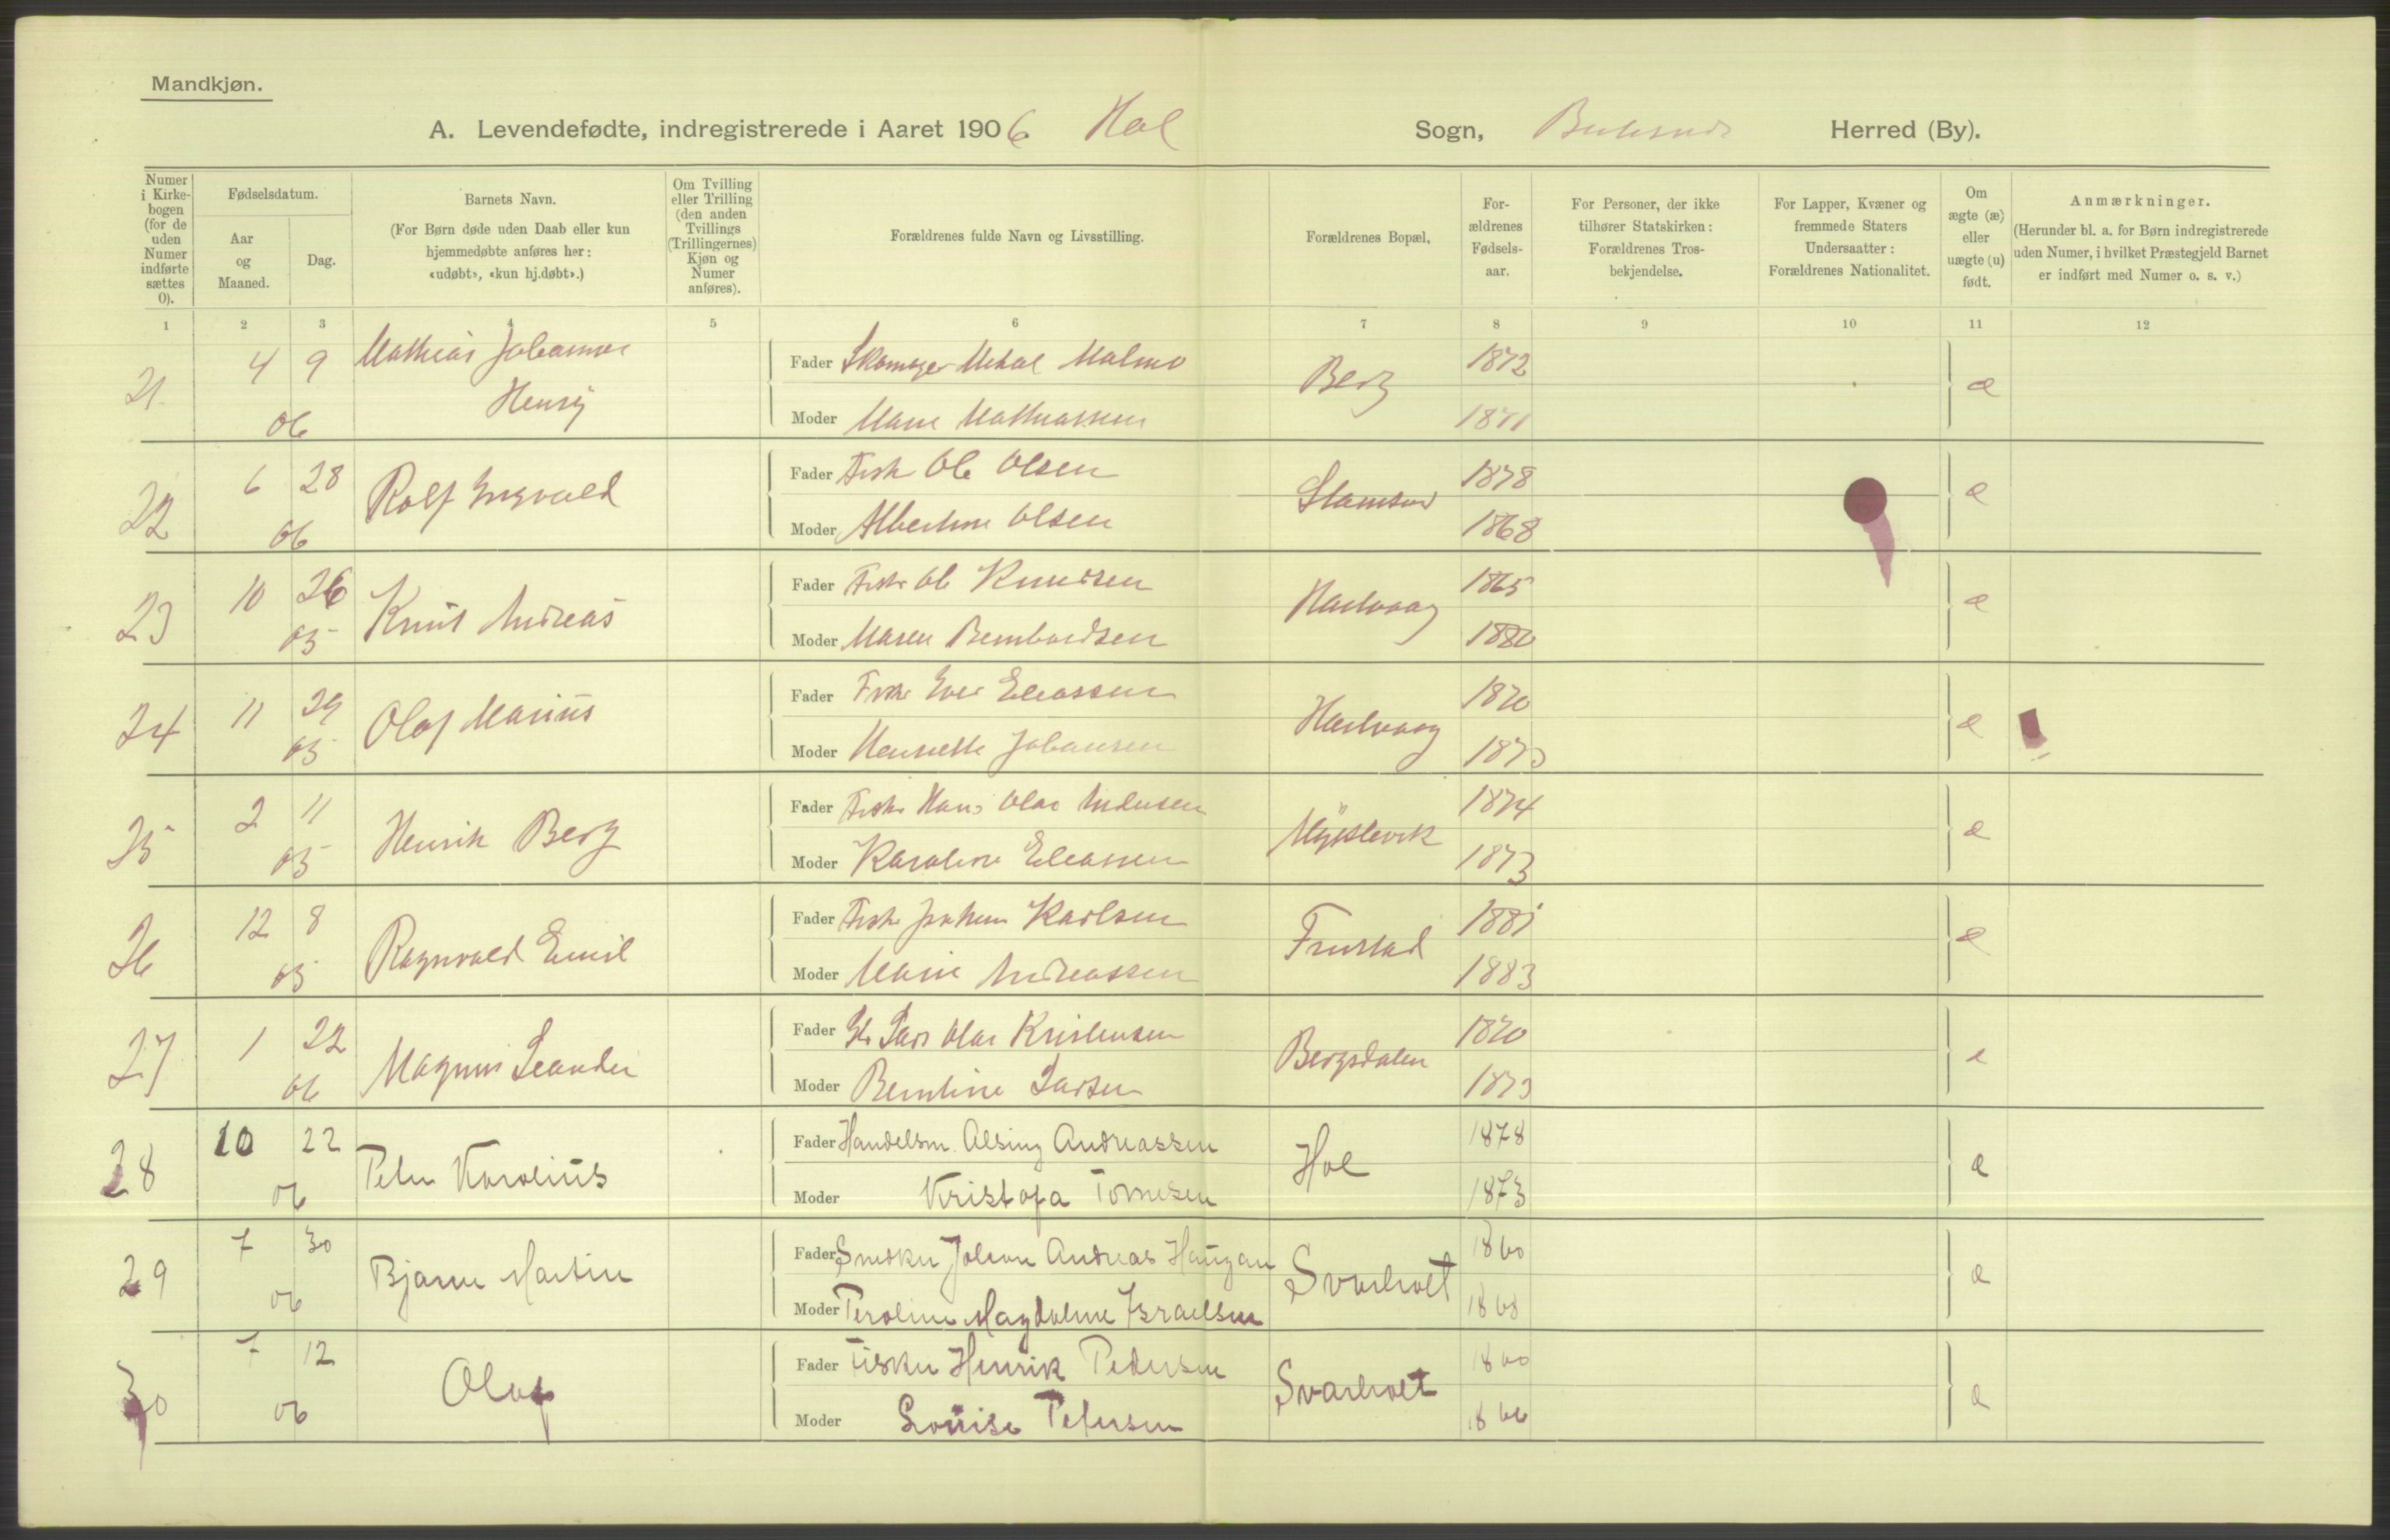 Mandkjøn.
A. Levendefødte, indregistrerede i Aaret 1906 Hol Sogn, Buksnes Herred (By).
Numer i Kirkebogen (for de uden Numer indførte sættes 0).
Fødselsdatum.
Aar og Maaned.
Dag.
Barnets Navn.
(For Børn døde uden Daab eller kun hjemmedøbte anføres her: «udøbt», «kun hj.døbt».)
Om Tvilling eller Trilling (den anden Tvillings (Trillingernes) Kjøn og Numer anføres).
Forældrenes fulde Navn og Livsstilling.
Forældrenes Bopæl,
Forældrenes Fødselsaar.
For Personer, der ikke tilhører Statskirken: Forældrenes Trosbekjendelse.
For Lapper, Kvæner og fremmede Staters Undersaatter: Forældrenes Nationalitet.
Om ægte (æ) eller uægte (u) født.
Anmærkninger.
(Herunder bl. a. for Børn indregistrerede uden Numer, i hvilket Præstegjeld Barnet er indført med Numer o. s. v.)
1 2 3 4 5 6 7 8 9 10 11 12
21 4 9 06 Mathias Johannes Henrij
Fader Skomager Mikal Malmo Berg 1872 æ
Moder Marie Mathiassen 1871
22 6 28 06 Rolf Ingvald
Fader Fisk Ole Olsen Stamsund 1878 æ
Moder Albertine Olsen 1868
23 10 26 05 Knut Andreas
Fader Fisker Ole Knudsen Hartvaag 1865 æ
Moder Maren Bernhardsen 1880
24 11 29 05 Olaf Marius
Fader Fisker Eliassen Hartvaag 1870 æ
Moder Henriette Johansen 1873
25 2 11 05 Henrik Berg
Fader Fisker Hans Olai Andersen 1874 æ
Moder Karoline Eliassen 1873
26 12 8 05 Ragnvald Emil
Fader Fisk Karlsen Frustad 1881 æ
Moder Marie Andreassen 1883
27 1 22 06 Magnus Leander
Fader Lars Olai Kristensen Bergsdalen 1870 æ
Moder Berntine Larsen 1873
28 10 22 06 Peter Karolius
Fader Handelsm. Alsing Andreassen Hol 1878 æ
Moder Kristofa Tomesen 1873
29 7 30 06 Bjarne Martin
Fader Snedker Johan Andreas Haugan Svarholt 1860 æ
Moder Peroline Magdalene Israelsen 1868
30 7 12 06 Olaf
Fader Fisker Henrik Pedersen Svarholt 1860 æ
Moder Louise Petersen 1866